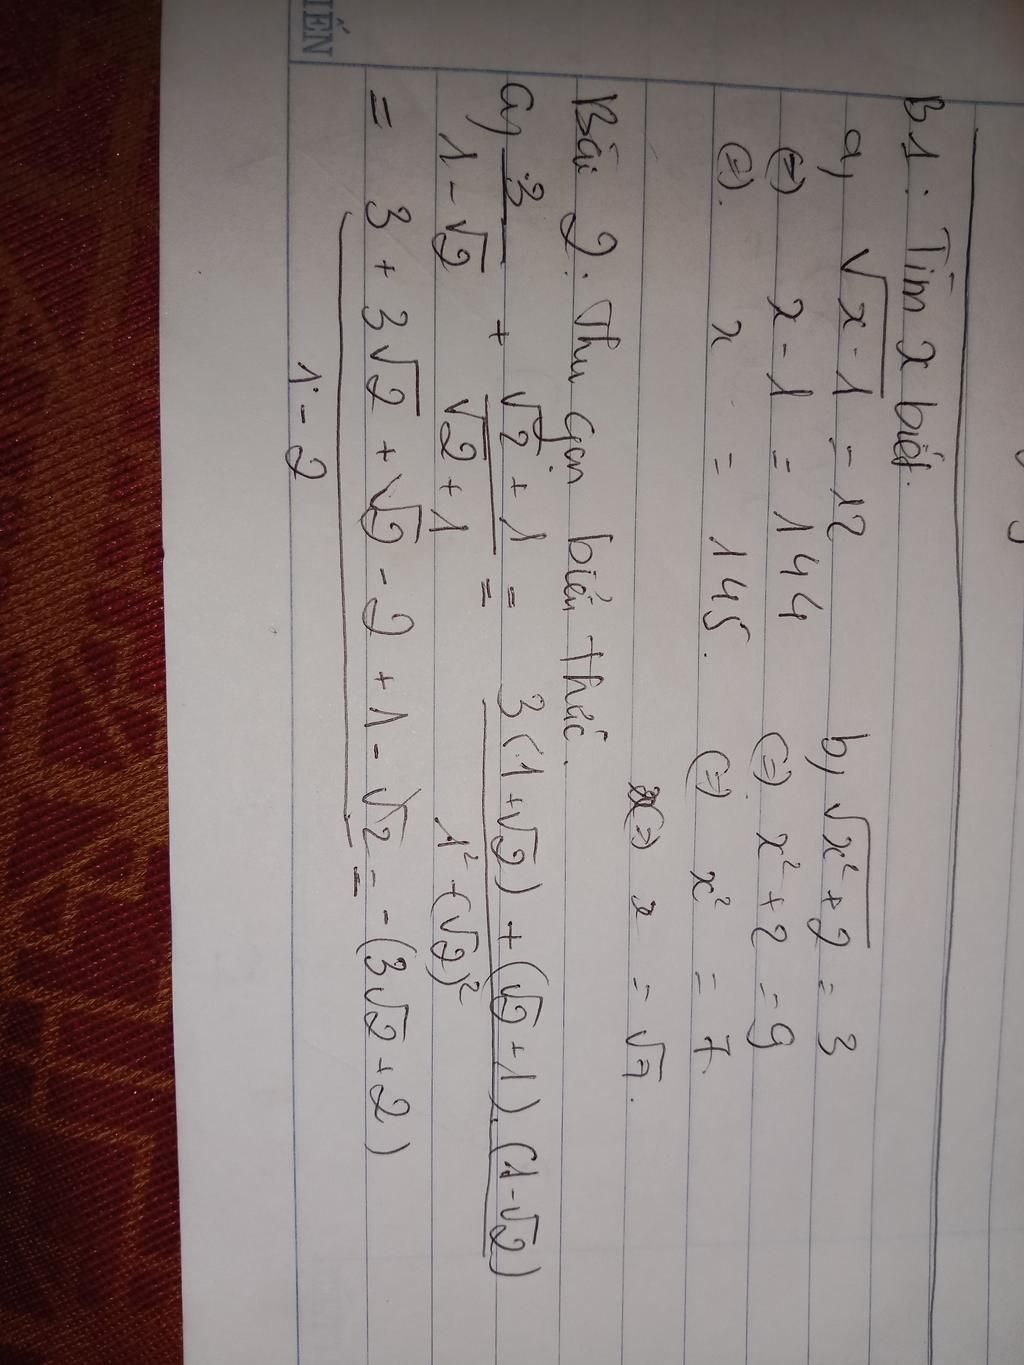 IẾN
B1: Tìm x biết.
a, √(x-1) = 12 b, √(x²+2) = 3
(=) x - 1 = 144 (=) x²+2 = 9
(=). x = 145. (=) x² = 7.
(=) x = √7.
Bài 2: Thu gọn biểu thức.
a, 3/(1-√2) + (√2+1)/(√2+1) = (3(1+√2) + (√2+1).(1-√2))/(1² - (√2)²)
= (3 + 3√2 + √2 - 2 + 1 - √2)/(1 - 2) = -(3√2+2)